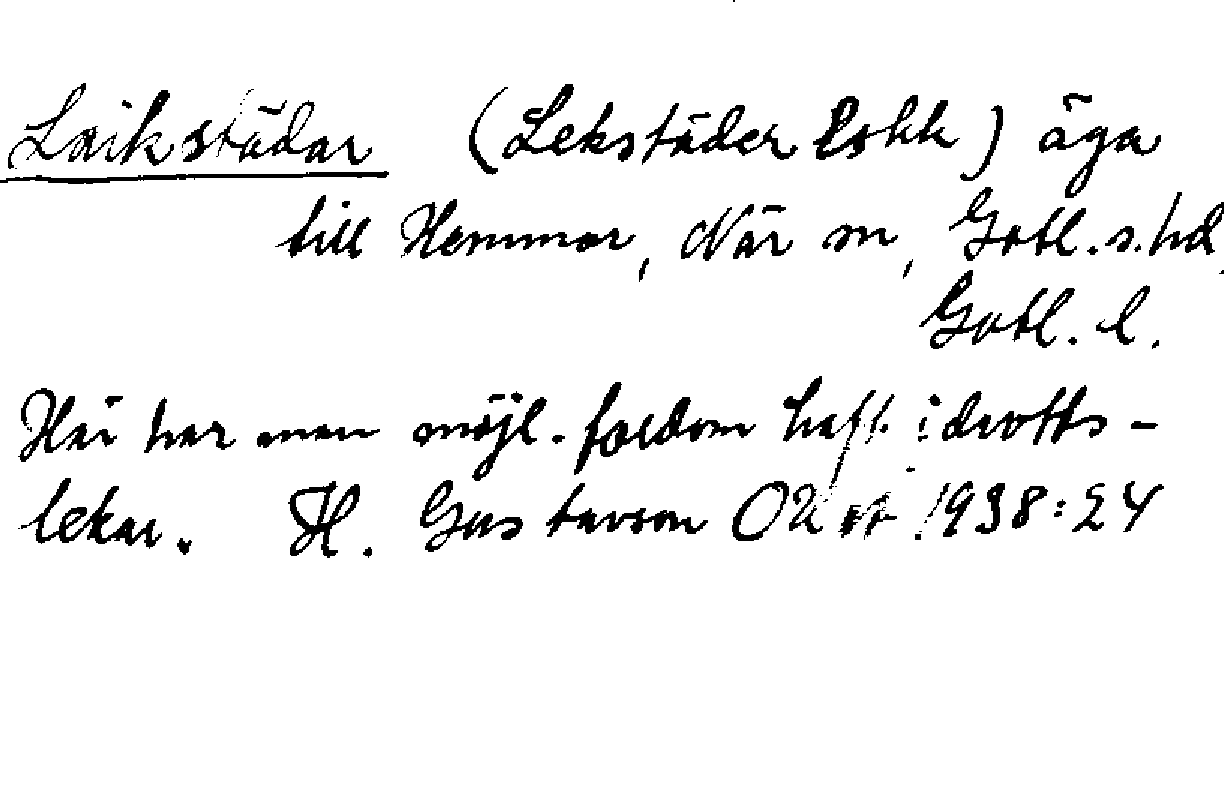 Laikstädar (Lekstäder Lskk) äga
till Hemmor, När sn, Gotl. s. hd,
Gotl. l.
Här har man möjl. fordom haft idrotts-
lekar. H. Gustavson 1938:24